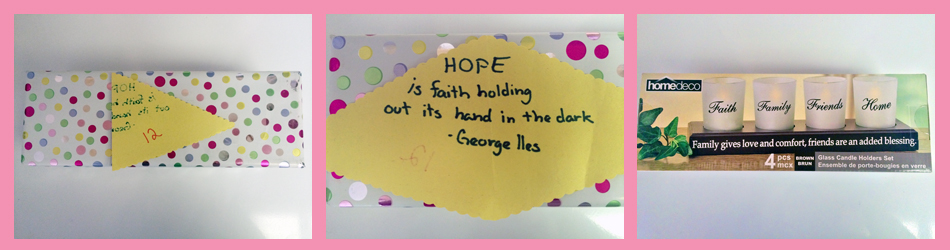 12
HOPE
is faith holding
out its hand in the dark
-George Iles
homedeco
Faith
Family
Friends
Home
Family gives love and comfort, friends are an added blessing.
4 pcs mcx BROWN BRUN Glass Candle Holders Set
Ensemble de porte-bougies en verre